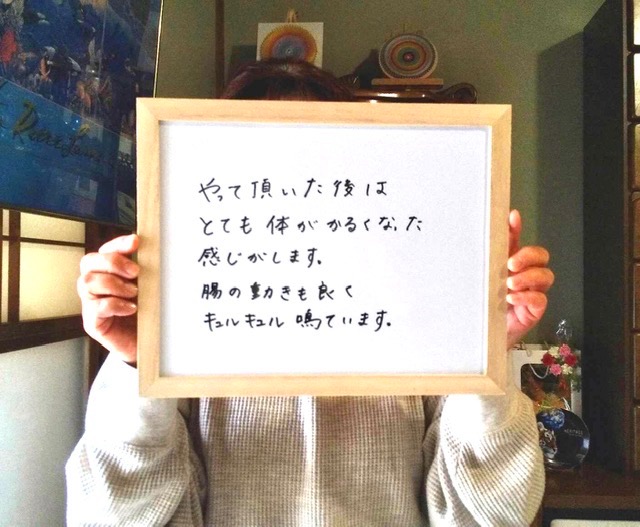 やって頂いた後は
とても体がかるくなった
感じがします。
腸の動きも良く
キュルキュル鳴ています。